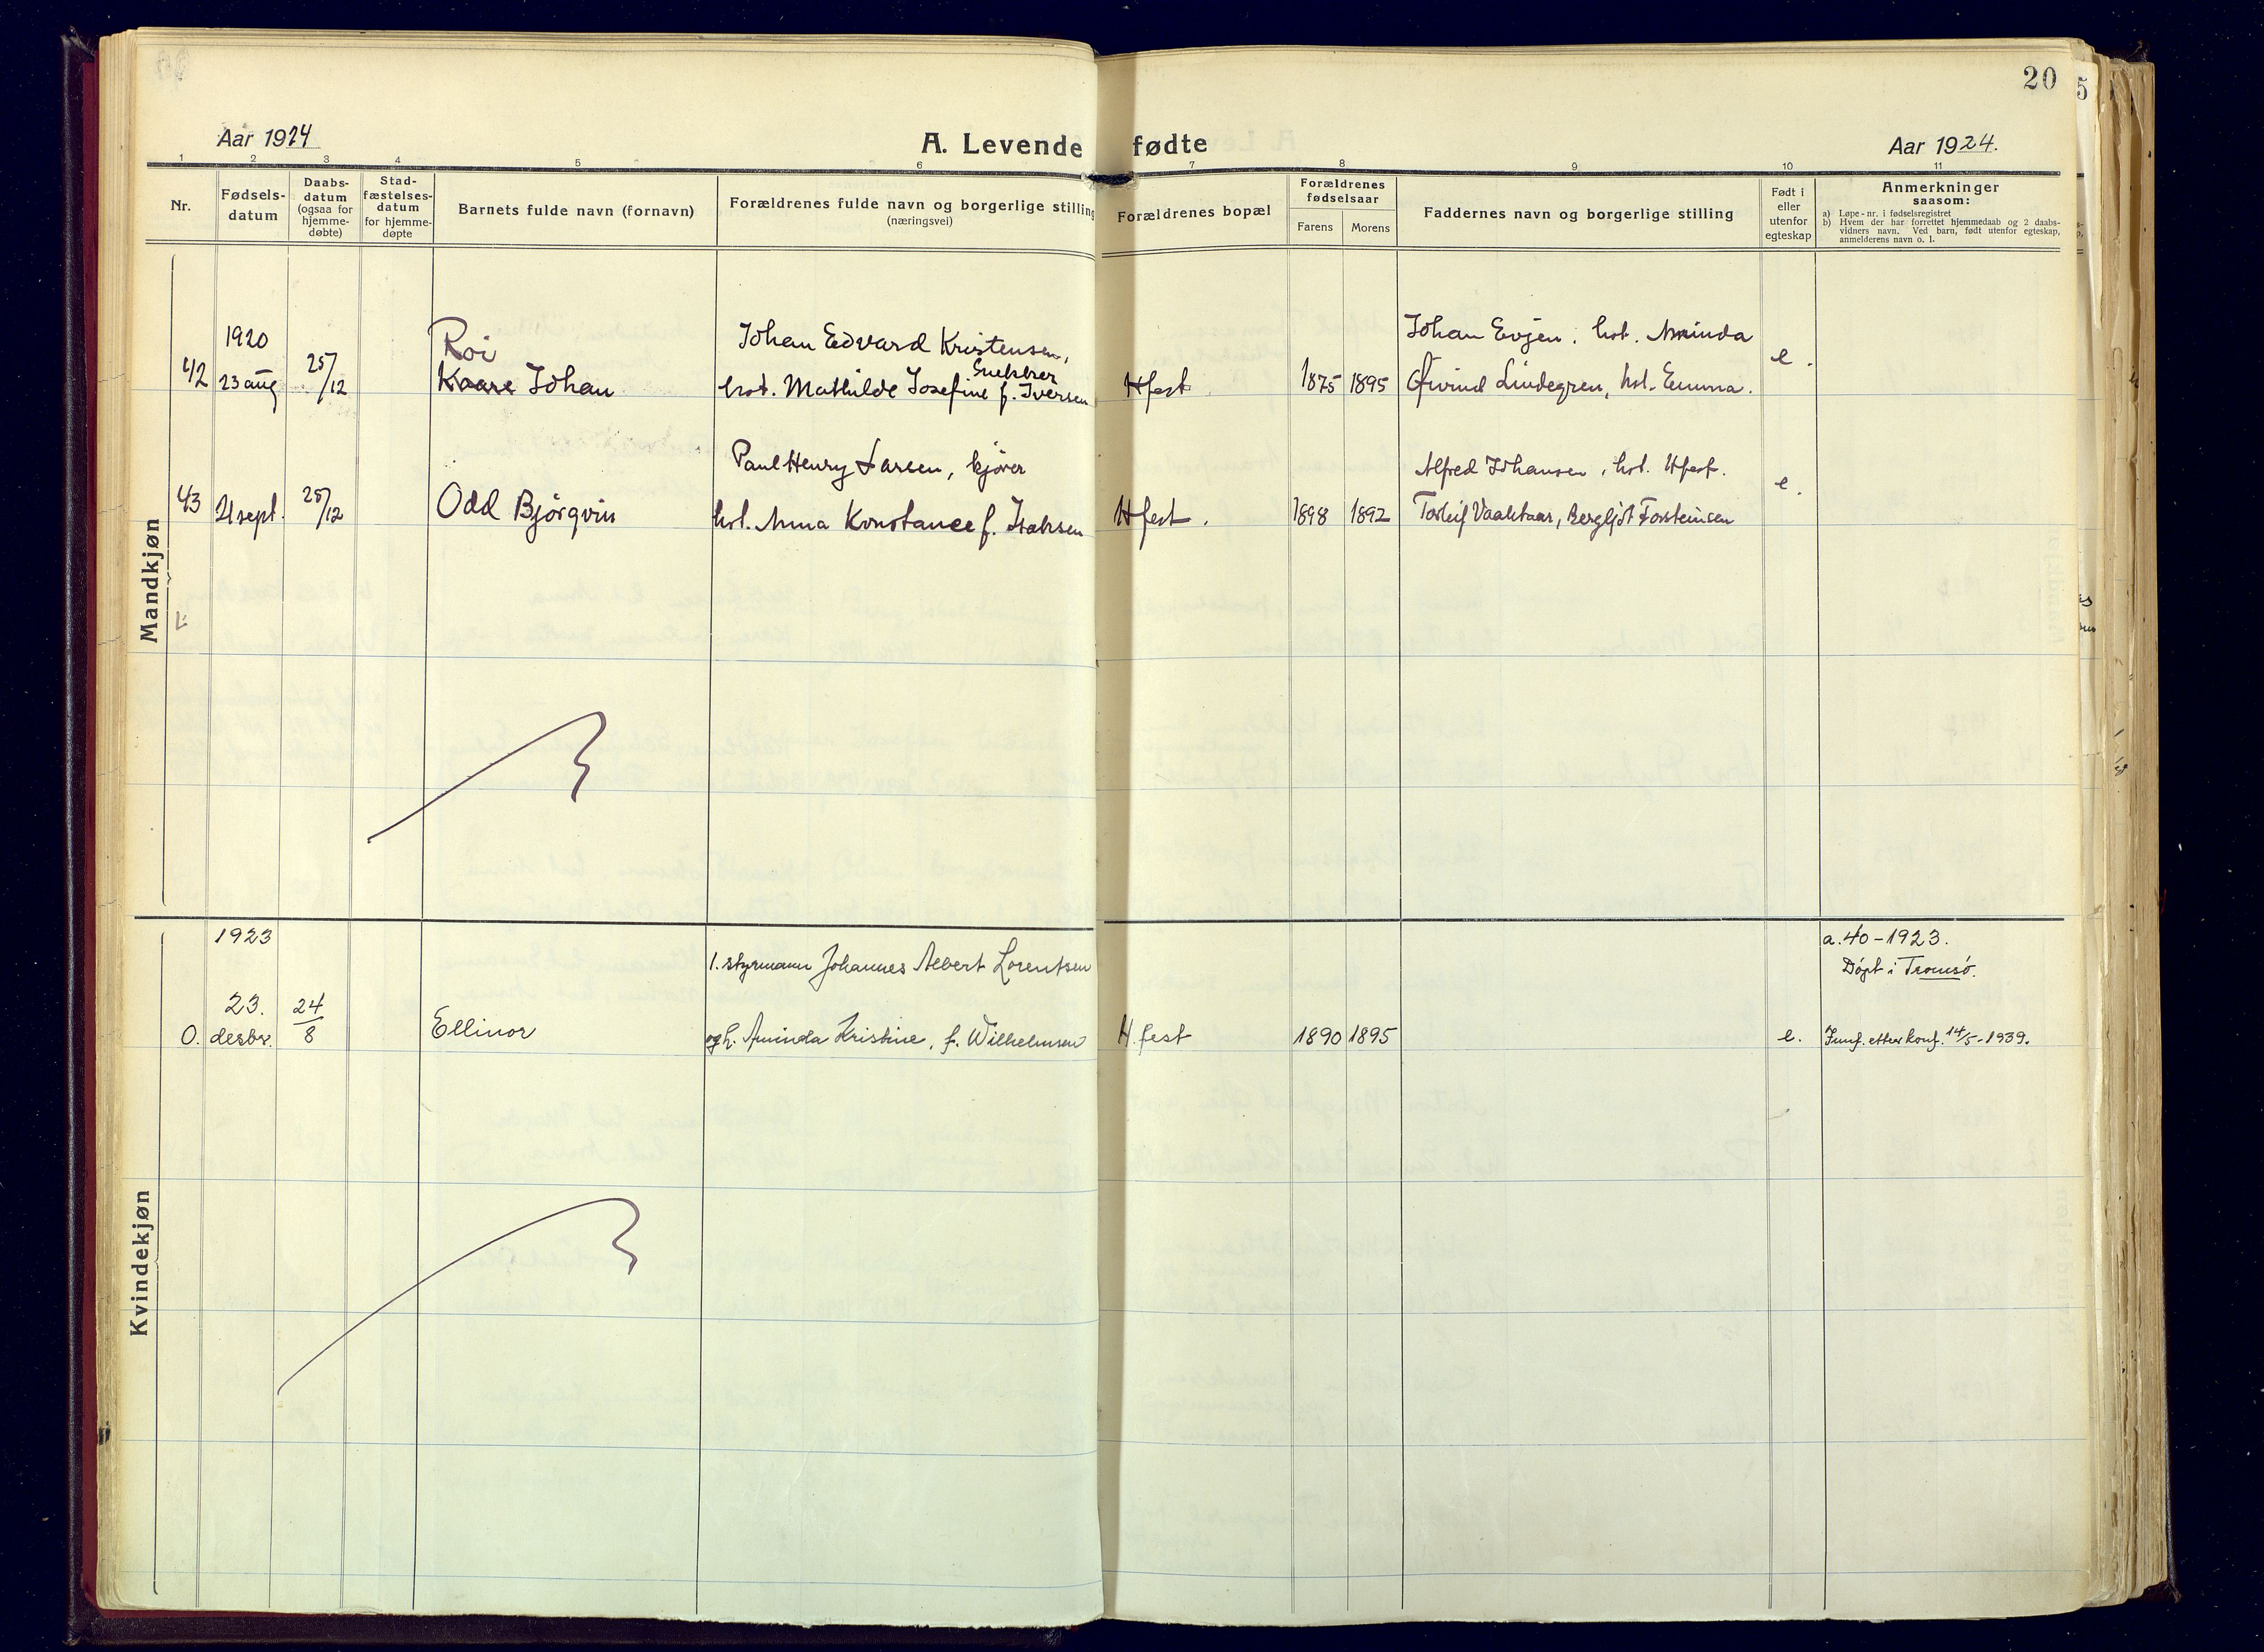 20
Aar 1924
A. Levende fødte
Aar 1924.
1 2 3 4 5 6 7 8 9 10 11
Nr.
Fødsels-
datum
Daabs-
datum
(ogsaa for
hjemme-
døbte)
Stad-
fæstelses-
datum
for hjemme-
døpte
Barnets fulde navn (fornavn)
Forældrenes fulde navn og borgerlige stilling
(næringsvei)
Forældrenes bopæl
Forældrenes
fødselsaar
Farens
Morens
Faddernes navn og borgerlige stilling
Født i
eller
utenfor
egteskap
Anmerkninger
saasom:
a) Løpe-nr. i fødselsregistret
b) Hvem der har forrettet hjemmedaab og 2 daabs-
vidners navn. Ved barn, født utenfor egteskap,
anmelderens navn o. l.
Mandkjøn
1920
42 23 aug 25/12
Roi
Kaare Johan
Johan Edvard Kristensen,
Snekker
hst. Mathilde Josefine f. Iversen
Hfest
1875 1895
Johan Evjen, hst. Minda
Øivind Lindegren, hst. Emma.
e.
43 21 sept. 25/12
Odd Bjørgvin
Paul Henry Larsen, kjører
hst. Anna Konstance f. Isaksen
Hfest.
1898 1892
Alfred Johansen, hst. Hfest.
Torleif Vaaktaar, Bergljot Torsteinsen
e.
Kvindekjøn
1923
0. 23. desbr. 24/8
Ellinor
1. styrmann Johannes Albert Lorentsen
og h. Aminda Kristine, f. Wilhelmsen
H.fest
1890 1895
e.
a. 40-1923.
Døpt i Tromsø.
Innf. etter konf. 14/5-1939.